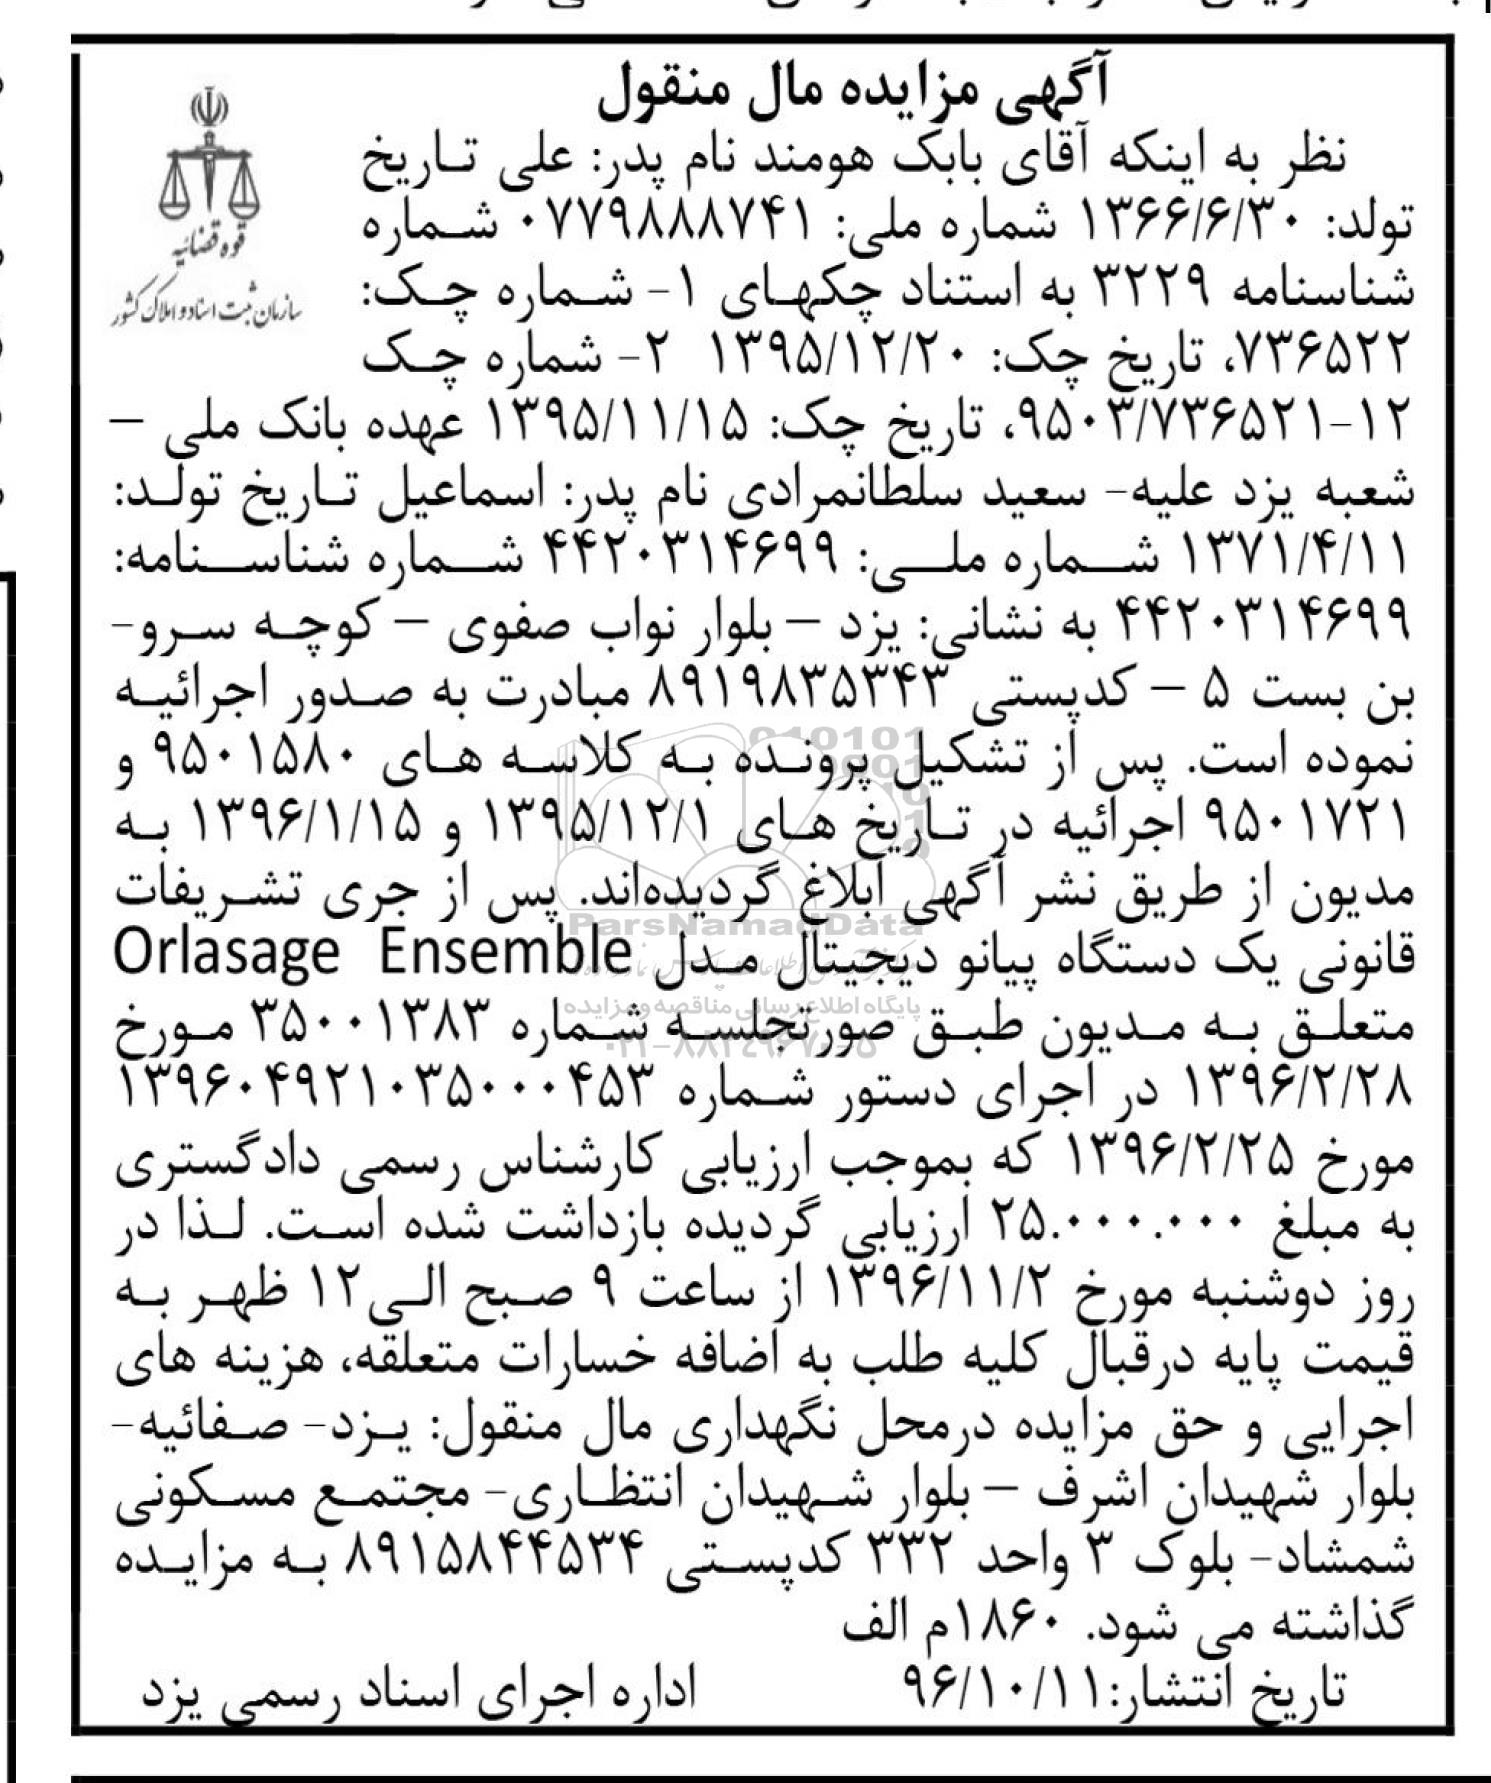 آگهی مزایده مال منقول
قوه قضائیه
سازمان ثبت اسناد و املاک کشور
نظر به اینکه آقای بابک هومند نام پدر: علی تاریخ
تولد: ۱۳۶۶/۶/۳۰ شماره ملی: ۰۷۷۹۸۸۸۷۴۱ شماره
شناسنامه ۳۲۲۹ به استناد چکهای ۱- شماره چک:
۷۳۶۵۲۲، تاریخ چک: ۱۳۹۵/۱۲/۲۰ ۲- شماره چک
۹۵۰۳/۷۳۶۵۲۱-۱۲، تاریخ چک: ۱۳۹۵/۱۱/۱۵ عهده بانک ملی –
شعبه یزد علیه- سعید سلطانمرادی نام پدر: اسماعیل تاریخ تولد:
۱۳۷۱/۴/۱۱ شماره ملی: ۴۴۲۰۳۱۴۶۹۹ شماره شناسنامه:
۴۴۲۰۳۱۴۶۹۹ به نشانی: یزد – بلوار نواب صفوی – کوچه سرو-
بن بست ۵ – کدپستی ۸۹۱۹۸۳۵۳۴۳ مبادرت به صدور اجرائیه
نموده است. پس از تشکیل پرونده به کلاسه های ۹۵۰۱۵۸۰ و
۹۵۰۱۷۲۱ اجرائیه در تاریخ های ۱۳۹۵/۱۲/۱ و ۱۳۹۶/۱/۱۵ به
مدیون از طریق نشر آگهی ابلاغ گردیده‌اند. پس از جری تشریفات
قانونی یک دستگاه پیانو دیجیتال مدل Orlasage Ensemble
متعلق به مدیون طبق صورتجلسه شماره ۳۵۰۰۱۳۸۳ مورخ
۱۳۹۶/۲/۲۸ در اجرای دستور شماره ۱۳۹۶۰۴۹۲۱۰۳۵۰۰۰۴۵۳
مورخ ۱۳۹۶/۲/۲۵ که بموجب ارزیابی کارشناس رسمی دادگستری
به مبلغ ۲۵.۰۰۰.۰۰۰ ارزیابی گردیده بازداشت شده است. لذا در
روز دوشنبه مورخ ۱۳۹۶/۱۱/۲ از ساعت ۹ صبح الی۱۲ ظهر به
قیمت پایه درقبال کلیه طلب به اضافه خسارات متعلقه، هزینه های
اجرایی و حق مزایده درمحل نگهداری مال منقول: یزد- صفائیه-
بلوار شهیدان اشرف – بلوار شهیدان انتظاری- مجتمع مسکونی
شمشاد- بلوک ۳ واحد ۳۳۲ کدپستی ۸۹۱۵۸۴۴۵۳۴ به مزایده
گذاشته می شود. ۱۸۶۰م الف
تاریخ انتشار:۹۶/۱۰/۱۱ اداره اجرای اسناد رسمی یزد
ParsNamadData
پایگاه اطلاع رسانی مناقصه و مزایده